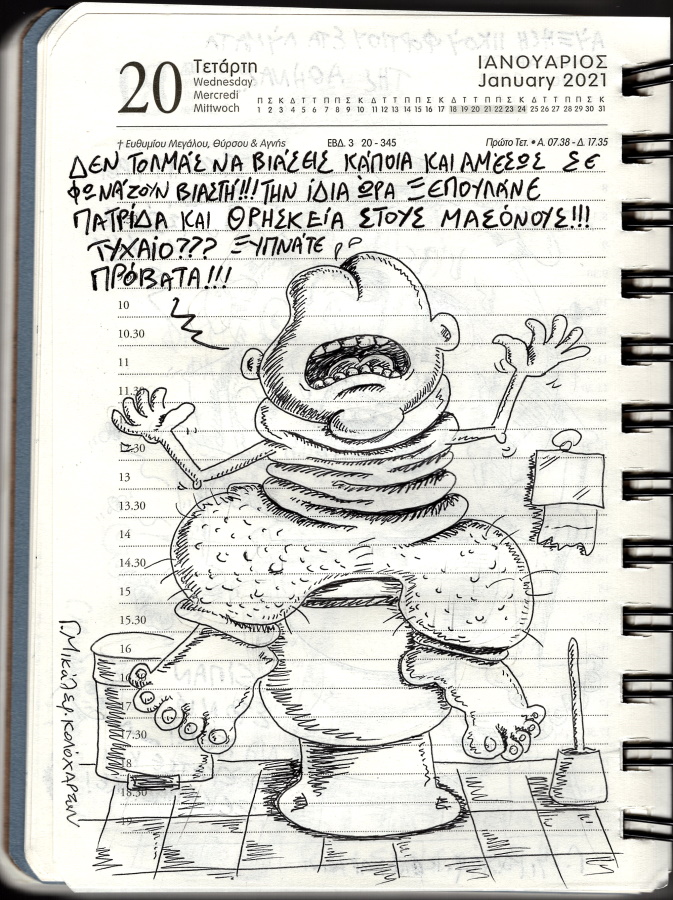 20
Τετάρτη
Wednesday
Mercredi
Mittwoch
ΙΑΝΟΥΑΡΙΟΣ
January 2021
Π Σ Κ Δ Τ Τ Π Π Σ Κ Δ Τ Τ Π Π Σ Κ Δ Τ Τ Π Π Σ Κ Δ Τ Τ Π Π Σ Κ
1 2 3 4 5 6 7 8 9 10 11 12 13 14 15 16 17 18 19 20 21 22 23 24 25 26 27 28 29 30 31
† Ευθυμίου Μεγάλου, Θύρσου & Αγνής ΕΒΔ. 3 20 - 345 Πρώτο Τετ. • Α. 07.38 - Δ. 17.35
ΔΕΝ ΤΟΛΜΆΣ ΝΑ ΒΙΆΣΕΙΣ ΚΆΠΟΙΑ ΚΑΙ ΑΜΈΣΩΣ ΣΕ
ΦΩΝΆΖΟΥΝ ΒΙΑΣΤΉ!!! ΤΗΝ ΊΔΙΑ ΏΡΑ ΞΕΠΟΥΛΆΝΕ
ΠΑΤΡΊΔΑ ΚΑΙ ΘΡΗΣΚΕΊΑ ΣΤΟΥΣ ΜΑΣΌΝΟΥΣ!!!
ΤΥΧΑΊΟ??? ΞΥΠΝΆΤΕ
ΠΡΌΒΑΤΑ!!!
10
10.30
11
11.30
12.30
13
13.30
14
14.30
15
15.30
16
17
17.30
18
18.30
19